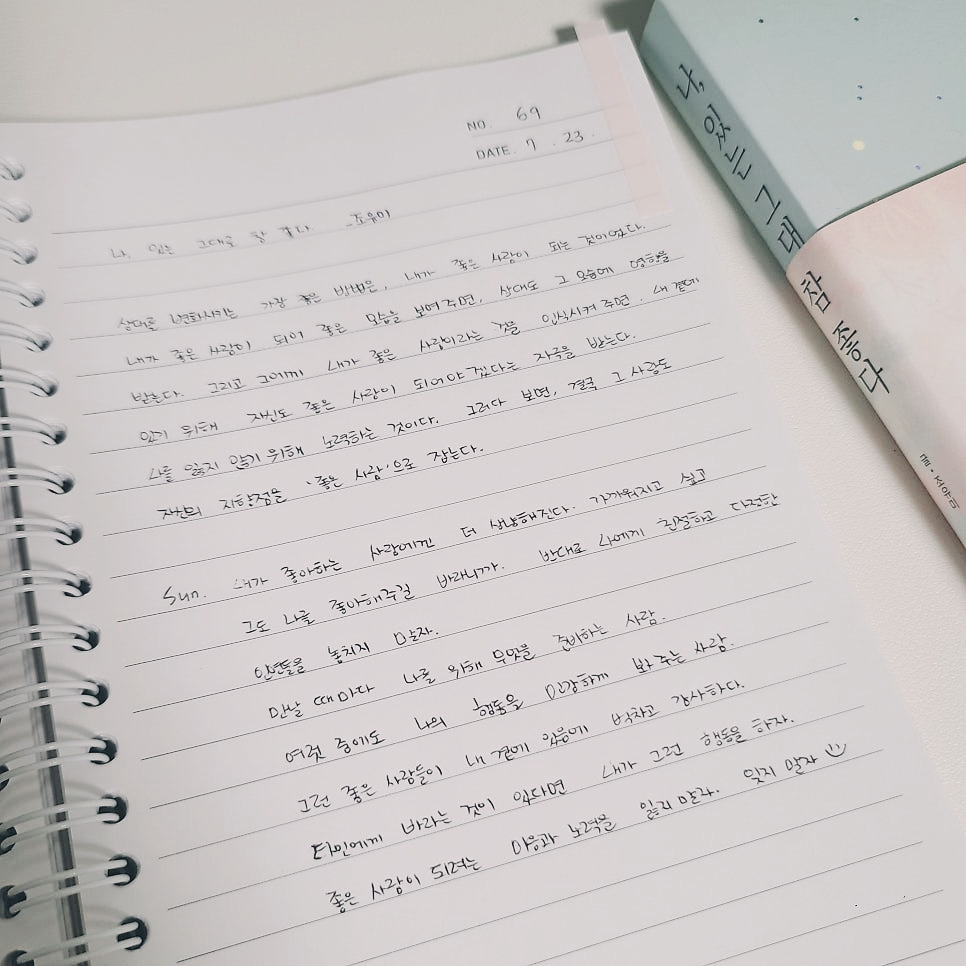 NO. 69
DATE. 7 . 23 .
나, 있는 그대로 참 좋다 _조유미
상대를 변화시키는 가장 좋은 방법은, 내가 좋은 사람이 되는 것이었다.
내가 좋은 사람이 되어 좋은 모습을 보여주면, 상대도 그 모습에 영향을
받는다. 그리고 그에게 내가 좋은 사람이라는 것을 인식시켜 주면, 내 곁에
있기 위해 자신도 좋은 사람이 되어야겠다는 자극을 받는다.
나를 잃지 않기 위해 노력하는 것이다. 그러다 보면, 결국 그 사람도
자신의 지향점을 '좋은 사람'으로 잡는다.
Sun. 내가 좋아하는 사람에겐 더 상냥해진다. 가까워지고 싶고
그도 나를 좋아해주길 바라니까. 반대로 나에게 친절하고 다정한
인연들을 놓치지 말자.
만날 때마다 나를 위해 무엇을 준비하는 사람.
여럿 중에도 나의 행동을 민감하게 봐 주는 사람.
그런 좋은 사람들이 내 곁에 있음에 벅차고 감사하다.
타인에게 바라는 것이 있다면 내가 그런 행동을 하자.
좋은 사람이 되려는 마음과 노력을 잃지 말자. 잊지 말자
나, 있는 그대로
참 좋다
글·조유미